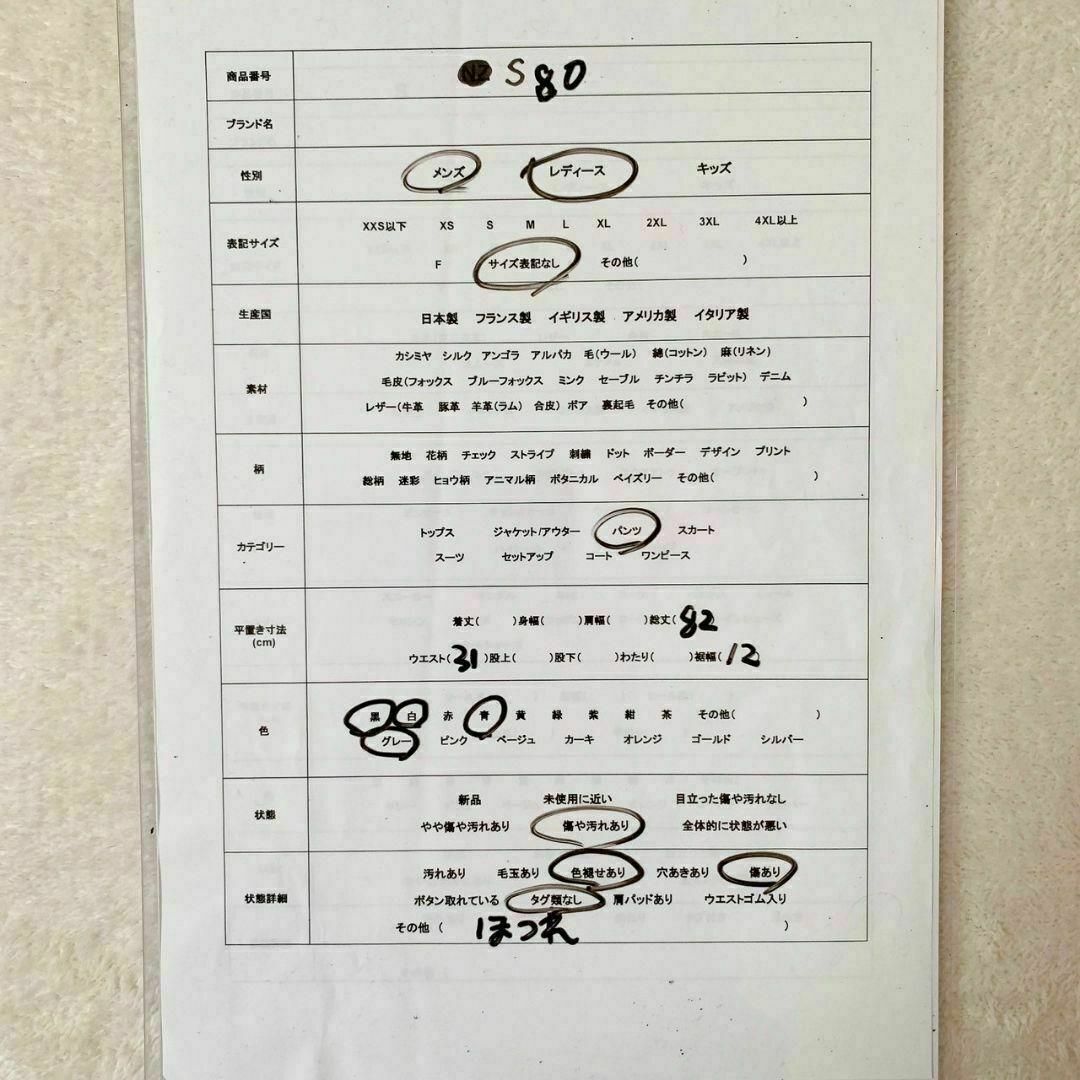 商品番号 NZ S80
ブランド名
性別 メンズ レディース キッズ
XXS以下 XS S M L XL 2XL 3XL 4XL以上
表記サイズ
F サイズ表記なし その他( )
生産国 日本製 フランス製 イギリス製 アメリカ製 イタリア製
カシミヤ シルク アンゴラ アルパカ 毛(ウール) 綿(コットン) 麻(リネン)
素材 毛皮(フォックス ブルーフォックス ミンク セーブル チンチラ ラビット) デニム
レザー(牛革 豚革 羊革(ラム) 合皮) ボア 裏起毛 その他( )
無地 花柄 チェック ストライプ 刺繍 ドット ボーダー デザイン プリント
柄
総柄 迷彩 ヒョウ柄 アニマル柄 ボタニカル ペイズリー その他( )
トップス ジャケット/アウター パンツ スカート
カテゴリー
スーツ セットアップ コート ワンピース
着丈( )身幅( )肩幅( )総丈(82
平置き寸法
(cm)
ウエスト(31)股上( )股下( )わたり( )裾幅(12
黒 白 赤 青 黄 緑 紫 紺 茶 その他( )
色
グレー ピンク ベージュ カーキ オレンジ ゴールド シルバー
新品 未使用に近い 目立った傷や汚れなし
状態
やや傷や汚れあり 傷や汚れあり 全体的に状態が悪い
汚れあり 毛玉あり 色褪せあり 穴あきあり 傷あり
状態詳細 ボタン取れている タグ類なし 肩パッドあり ウエストゴム入り
その他 ( ほつれ )